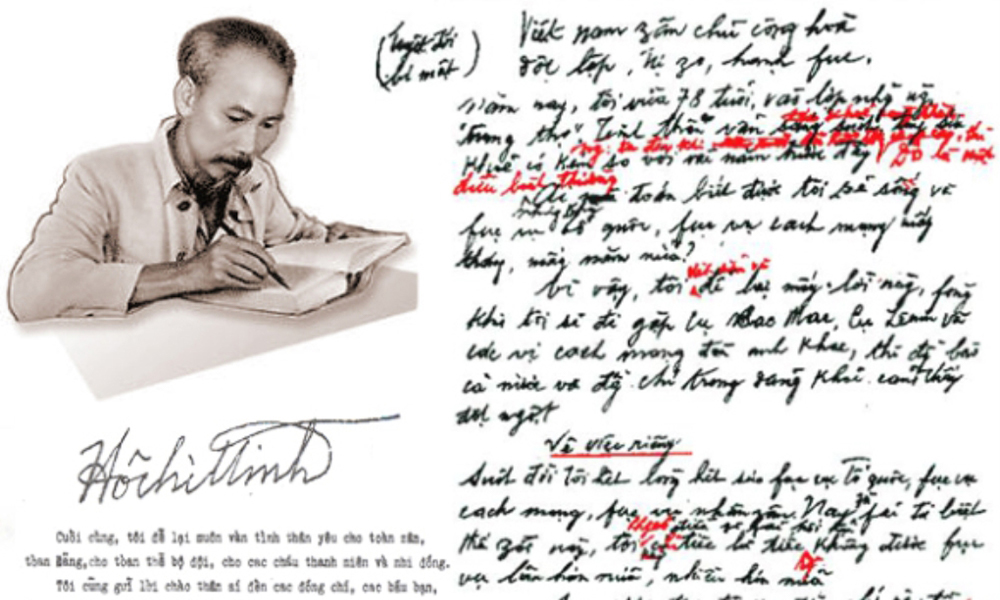 (tuyệt đối
bí mật)
Việt nam zân chủ cộng hoà
độc lập, tự zo, hạnh fúc.
Năm nay, tôi vừa 78 tuổi, vào lớp những
"trung thọ". Tinh thần vẫn
khoẻ có kém so với vài năm trước đây Đó là một
điều bình thường
toán biết được tôi sẽ sống và
fục vụ Tổ quốc, fục vụ cách mạng mấy
tháng, mấy năm nữa?
Vì vậy, tôi để lại mấy lời này, fòng
khi tôi sẽ đi gặp cụ Các Mác, cụ Lênin và
các vị cách mạng đàn anh khác, thì đồng bào
cả nước và đ/c chí trong đảng khỏi cảm thấy
đột ngột
Về việc riêng
Suốt đời tôi hết lòng hết sức fục vụ Tổ quốc, fục vụ
cách mạng, fục vụ nhân zân. Nay fải từ biệt
thế zới này, tôi tiếc là tiếc không được fục
vụ lâu hơn nữa, nhiều hơn nữa
Hồ Chí Minh
Cuối cùng, tôi để lại muôn vàn tình thân yêu cho toàn zân,
toàn Đảng, cho toàn thể bộ đội, cho các cháu thanh niên và nhi đồng.
Tôi cũng gửi lời chào thân ái đến các đồng chí, các bầu bạn,